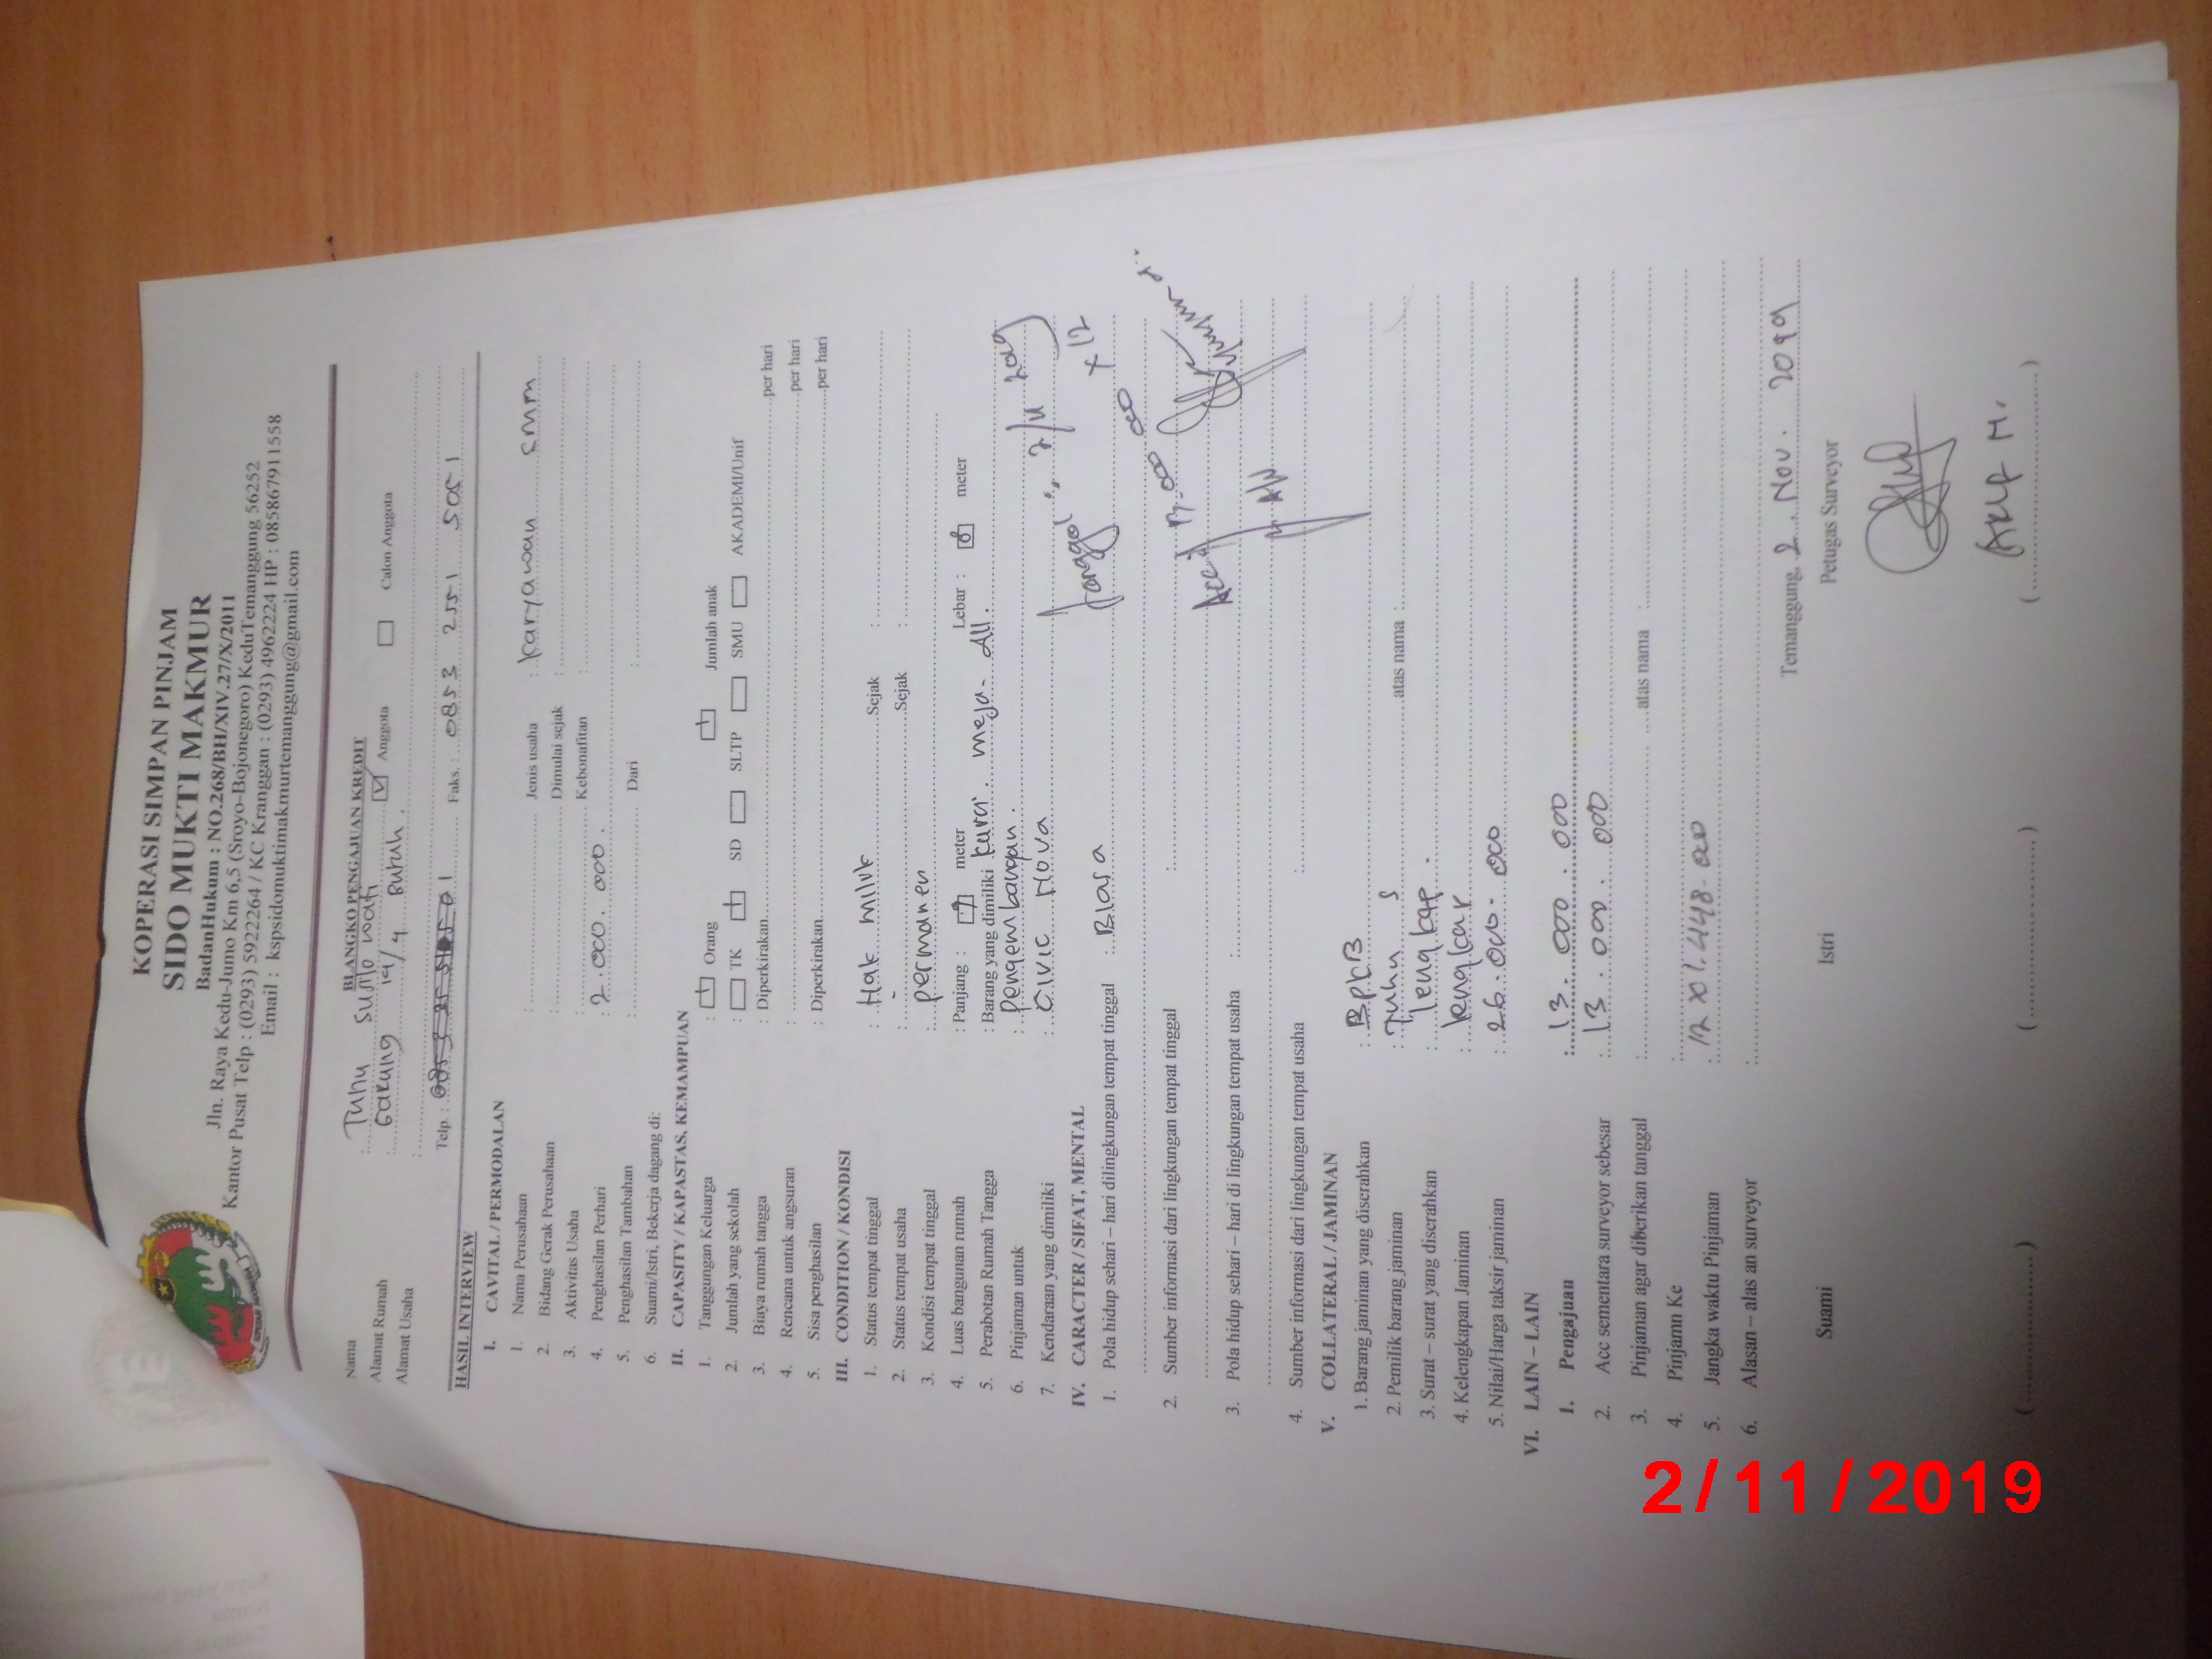 KOPERASI SIMPAN PINJAM
SIDO MUKTI MAKMUR
BadanHukum : NO.268/BH/XIV.27/X/2011
Jln. Raya Kedu-Jumo Km 6,5 (Sroyo-Bojonegoro) KeduTemanggung 56252
Kantor Pusat Telp : (0293) 5922264 / KC Kranggan : (0293) 4962224 HP : 085867911558
Email : kspsidomuktimakmurtemanggung@gmail.com
BLANGKO PENGAJUAN KREDIT
Nama : Tuhu
Anggota Calon Anggota
Alamat Rumah :
Alamat Usaha :
Telp : Faks. : 0853 2551 5051
HASIL INTERVIEW
I. CAVITAL / PERMODALAN
1. Nama Perusahaan : Jenis usaha : karyawan
2. Bidang Gerak Perusahaan : Dimulai sejak :
3. Aktivitas Usaha : Kebonafitan :
4. Penghasilan Perhari : 2.000.000.
5. Penghasilan Tambahan :
6. Suami/Istri, Bekerja dagang di: Dari :
II. CAPASITY / KAPASTAS, KEMAMPUAN
1. Tanggungan Keluarga : Orang Jumlah anak
2. Jumlah yang sekolah : TK SD SLTP SMU AKADEMI/Unif
3. Biaya rumah tangga : Diperkirakan per hari
4. Rencana untuk angsuran : per hari
5. Sisa penghasilan : Diperkirakan per hari
III. CONDITION / KONDISI
1. Status tempat tinggal : Hak milik Sejak :
2. Status tempat usaha : - Sejak :
3. Kondisi tempat tinggal : permanen
4. Luas bangunan rumah : Panjang : meter Lebar : meter
5. Perabotan Rumah Tangga : Barang yang dimiliki kursi. meja. All.
6. Pinjaman untuk : pengembangan.
7. Kendaraan yang dimiliki : Civic Nova
IV. CARACTER / SIFAT, MENTAL
1. Pola hidup sehari – hari dilingkungan tempat tinggal : Biasa
2. Sumber informasi dari lingkungan tempat tinggal :
3. Pola hidup sehari – hari di lingkungan tempat usaha :
4. Sumber informasi dari lingkungan tempat usaha :
x 12
V. COLLATERAL / JAMINAN
1. Barang jaminan yang diserahkan : BPKB
2. Pemilik barang jaminan : Tuhu S atas nama :
3. Surat – surat yang diserahkan : lengkap.
4. Kelengkapan Jaminan :
5. Nilai/Harga taksir jaminan : 26.000.000
VI. LAIN – LAIN
1. Pengajuan : 13.000.000
2. Acc sementara surveyor sebesar : 13.000.000
3. Pinjaman agar diberikan tanggal : atas nama :
4. Pinjamn Ke :
5. Jangka waktu Pinjaman 12 x 1.448.000
6. Alasan – alas an surveyor :
Temanggung, 2. Nov. 2019
Suami Istri Petugas Surveyor
(....................) (....................) (....................)
2/11/2019